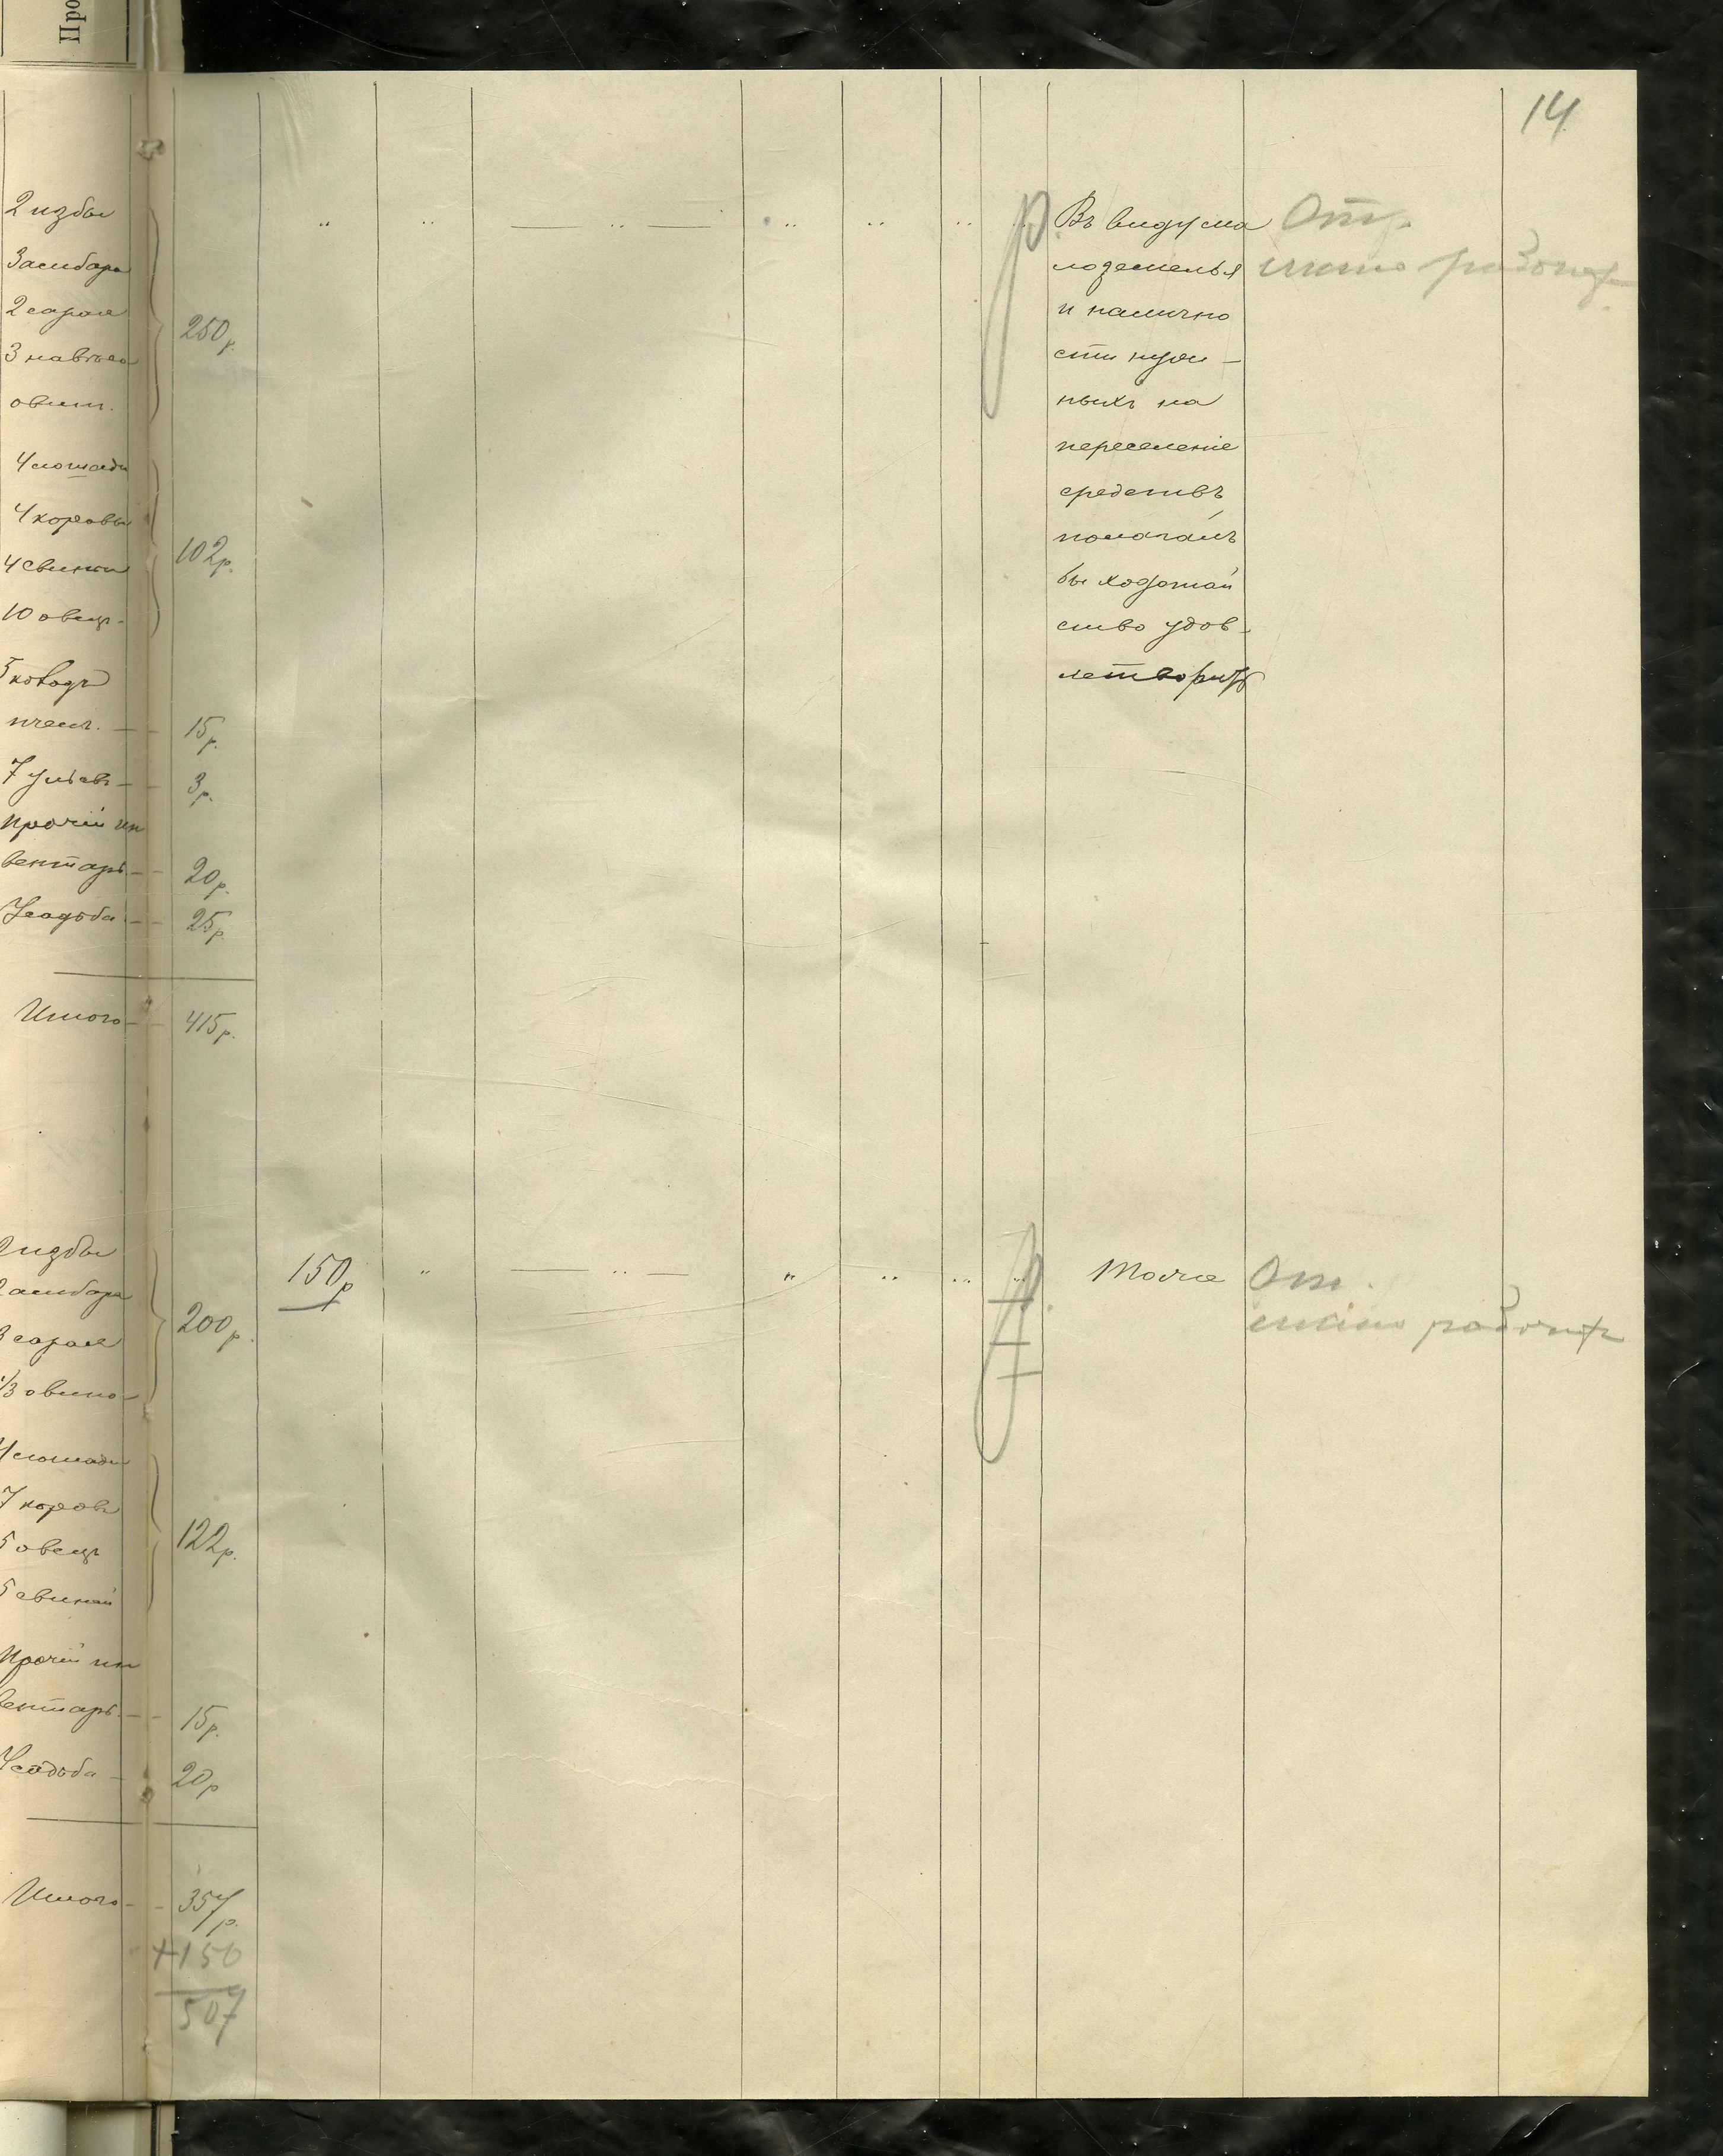 Про
14
2 избы
3 амбара
2 сарая
3 навѣса
овинъ.
250 р.
4 лошади
4 коровы
4 свиньи
10 овецъ.
102 р.
5 колодъ
пчелъ. — 15 р.
7 ульевъ — 3 р.
прочій ин
вентарь — 20 р.
Усадьба — 25 р.
Итого — 415 р.
Въ виду ма
лоземелья
и налично
сти нуж-
ныхъ на
переселеніе
средствъ
полагалъ
бы ходатай
ство удов-
летворить
р.
От.
мало рабочихъ
2 избы
2 амбара
3 сарая
1/3 овина
200 р.
150 р
Тоже
р.
От.
мало рабочихъ
4 лошади
7 коровъ
5 овецъ
5 свиней
122 р.
прочій ин
вентарь — 15 р.
Усадьба — 20 р
Итого — 357 р.
+150
507